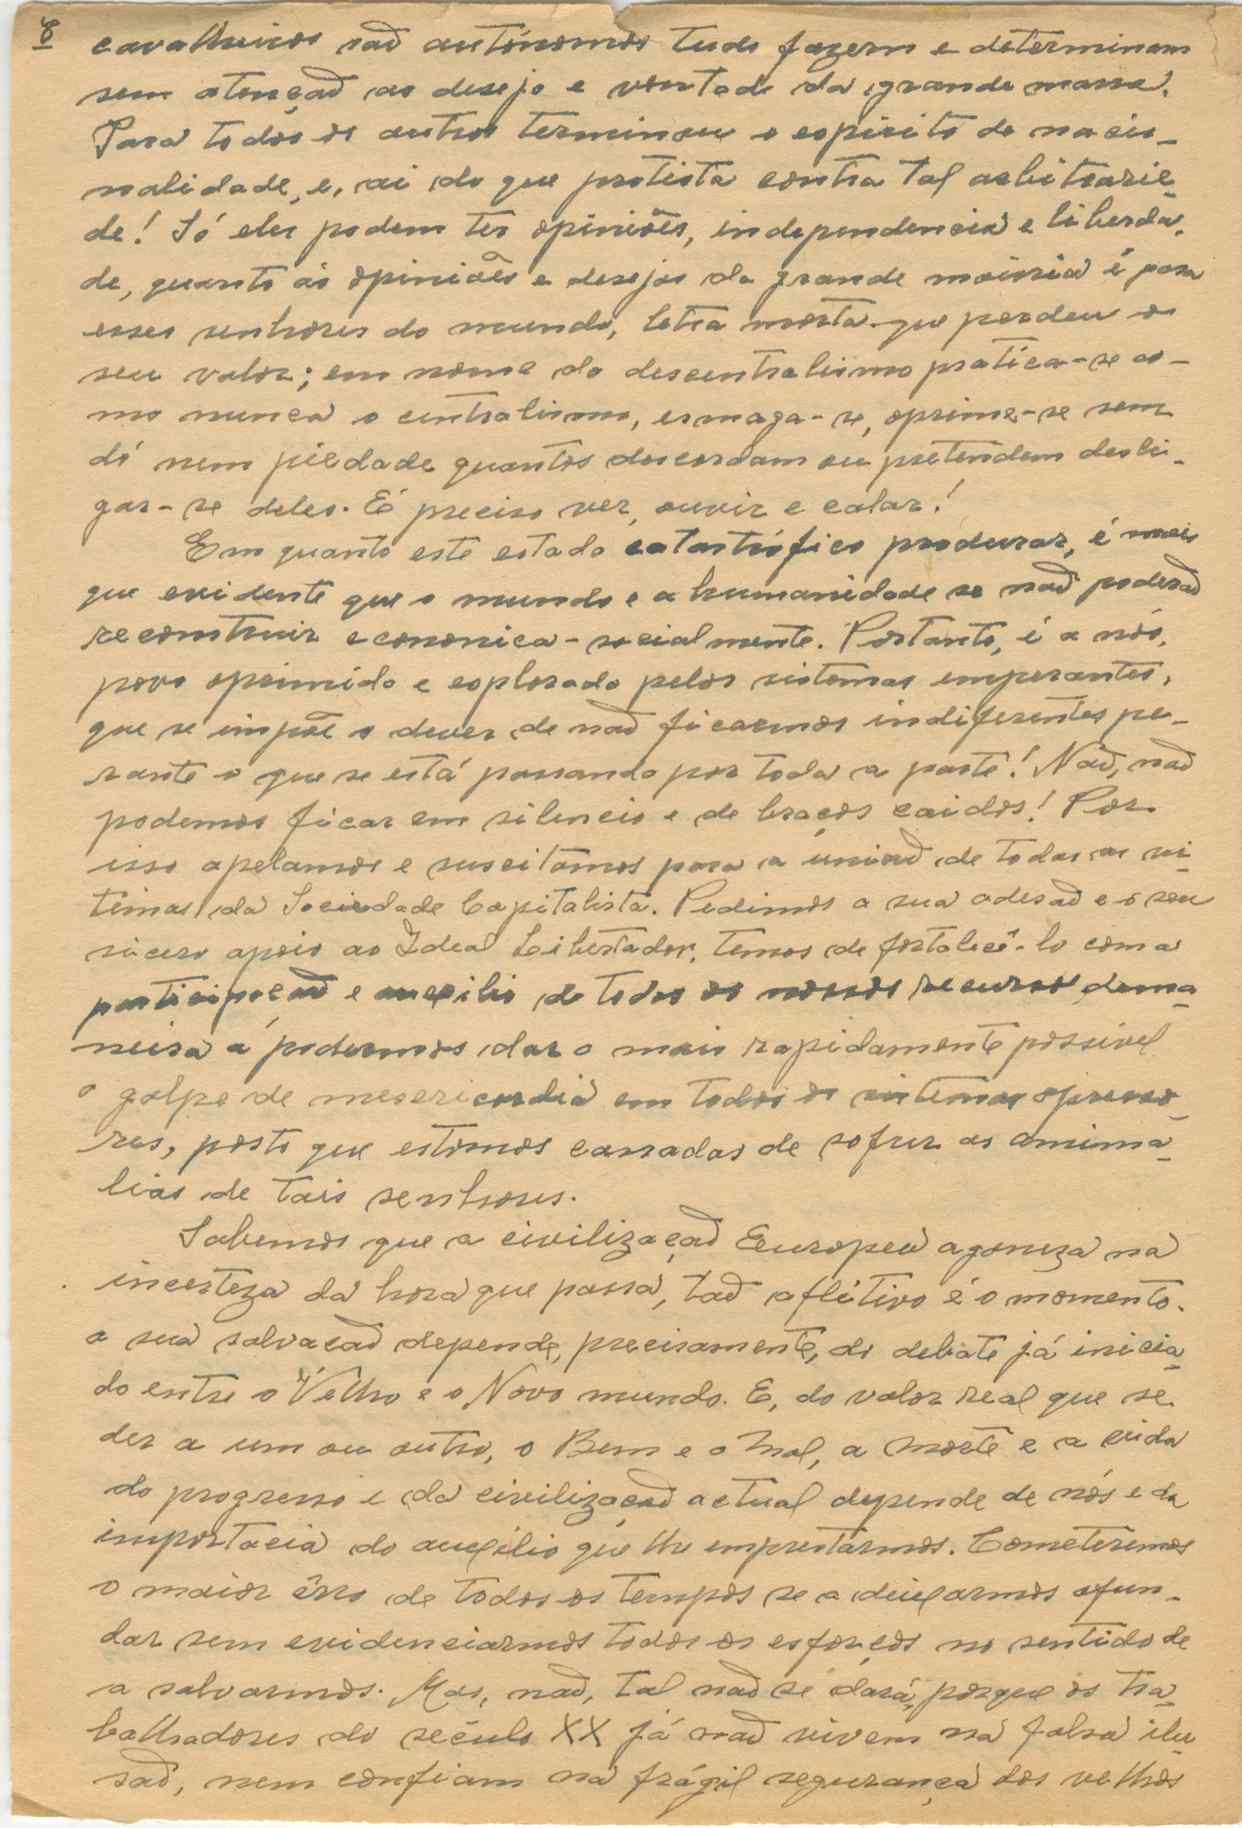 8
cavalheiros saõ autónomos tudo fazem e determinam
sem atençaõ ao desejo e vontade da grande massa.
Para todos os outros terminou o espirito de nacio-
nalidade, e, ai do que protesta contra tal arbitrarie-
de! Só eles podem ter opiniões, independencia e liberda-
de, quanto ás opiniões e desejos da grande maioria é para
esses senhores do mundo, letra morta que perdeu o
seu valor; em nome do descentralismo pratica-se co-
mo nunca o centralismo, esmaga-se, oprime-se sem
dó nem piedade quantos discordam ou pretendem desli-
gar-se deles. É preciso ver, ouvir e calar!
Em quanto este estado catastrófico perdurar, é mais
que evidente que o mundo e a humanidade se naõ poderaõ
reconstruir economica-socialmente. Portanto, é a nós,
povo oprimido e explorado pelos sistemas imperantes,
que se impõe o dever de naõ ficarmos indiferentes pe-
rante o que se está passando por toda a parte! Naõ, naõ
podemos ficar em silencio e de braços caidos! Por
isso apelamos e suscitamos para a úniaõ de todas as vi-
timas da Sociedade Capitalista. Pedimos a sua adesaõ e o seu
sincero apoio ao Ideal Libertador, temos de fortalecê-lo com a
participaçaõ e auxilio de todos os nossos recursos de ma-
neira a podermos dar o mais rapidamente possivel
o golpe de misericordia em todos os sistemas opresso-
res, posto que estamos cansados de sofrer as anima-
lias de tais senhores.
Sabemos que a civilizaçaõ Europeu agoniza na
incerteza da hora que passa, taõ aflitivo é o momento.
a sua salvaçaõ depende, precisamente, do debate já inicia-
do entre o Velho e o Novo mundo. E, do valor real que se
der a um ou outro, o Bem e o Mal, a Morte e a vida
do progresso e da civilizaçaõ actual depende de nós e da
importacia do auxilio que lhe emprestarmos. Cometeremos
o maior êrro de todos os tempos se a deixarmos afun-
dar sem evidenciarmos todos os esforços no sentido de
a salvarmos. Mas, naõ, tal naõ se dará, porque os tra-
balhadores do século XX já naõ vivem na falsa ilu-
saõ, nem confiam na frágil segurança dos velhos